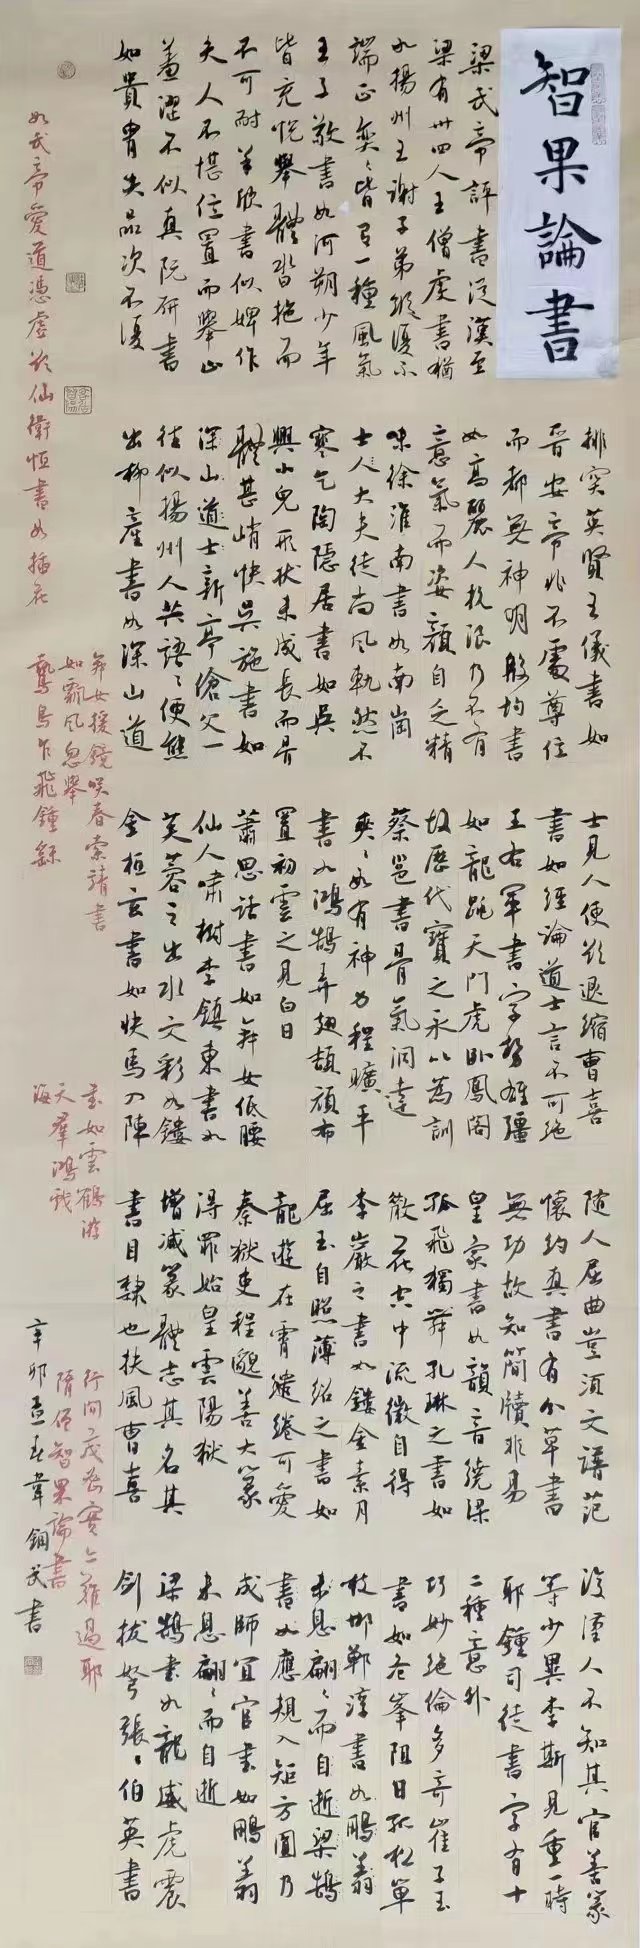 智果論書
梁武帝評書從漢至
梁有卅四人王僧虔書猶
如揚州王謝子弟縱復不
端正奕〻皆有一種風氣
王子敬書如河朔少年
皆充悅舉體沓拖而
不可耐羊欣書似婢作
夫人不堪位置而舉止
羞澀不似真阮研書
如貴胄失品次不復
排突英賢王儀書如
晉安帝非不處尊位
而都無神明殷均書
如高麗人抗浪乃不有
意氣而姿顏自乏精
味徐淮南書如南崗
士人大夫徒尚風軌然不
寒乞陶隱居書如吳
興小兒形狀未成長而骨
體甚峭快吳施書如
深山道士新亭傖父一
往似揚州人共語〻便態
出柳產書如深山道
士見人便欲退縮曹喜
書如經論道士言不可絕
王右軍書字勢雄疆
如龍跳天門虎臥鳳閣
故歷代寶之永以為訓
蔡邕書骨氣洞達
爽〻如有神力程曠平
書如鴻鵠弄翅頡頏布
置初雲之見白日
蕭思話書如舞女低腰
仙人嘯樹李鎮東書如
芙蓉之出水文彩如鏤
金桓玄書如快馬入陣
隨人屈曲豈須文譜范
懷約真書有分草書
無功故知簡牘非易
皇象書如韻音繞梁
孤飛獨舞孔琳之書如
散花空中流徽自得
李巖之書如鏤金素月
屈玉自照薄紹之書如
龍遊在霄繾綣可愛
秦獄吏程邈善大篆
得罪始皇雲陽獄
增減篆體去其名其
書曰隸也扶風曹喜
後漢人不知其官善篆
等少異李斯見重一時
耶鍾司徒書字有十
二種意外
巧妙絕倫多奇崔子玉
書如危峯阻日孤松單
枝邯鄲淳書如鵬翥
未息翩〻而自逝梁鵠
書如應規入矩方圓乃
成師宜官書如鵬翥
未息翩〻而自逝
梁鵠書如龍威虎震
劍拔弩張〻伯英書
如武帝愛道憑虛欲仙衛恒書如插花
舞女援鏡笑春索靖書
如飄風忽舉
鷙鳥乍飛鍾繇
書如雲鶴游
天群鴻戲
海
行間茂密實亦難過耶
隋僧智果論書
辛卯孟春韋鋼武書